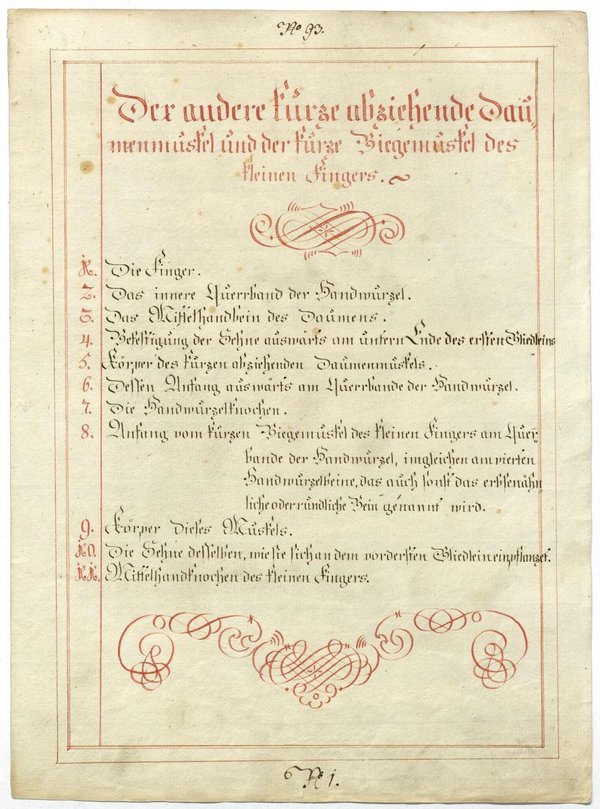 No 93.
Der andere kurze abziehende Dau-
menmuskel und der kurze Biegemuskel des
kleinen Fingers.
1. Die Finger.
2. Das innere Querrband der Handwurzel.
3. Das Mittelhandbein des Daumens.
4. Befestigung der Sehne auswärts am untern Ende des ersten Gliedleins
5. Körper des kurzen abziehenden Daumenmuskels.
6. Dessen Anfang auswärts am Querrbande der Handwurzel.
7. Die Handwurzelknochen.
8. Anfang vom kurzen Biegemuskel des kleinen Fingers am Querr-
bande der Handwurzel, imgleichen am vierten
Handwurzelbeine, das auch sonst das erbsenähn-
liche oder rundliche Bein genannt wird.
9. Körper dieses Muskels.
10. Die Sehne desselben, wie sie sich an dem vordersten Gliedlein einpflanzet.
11. Mittelhandknochen des kleinen Fingers.
No 1.